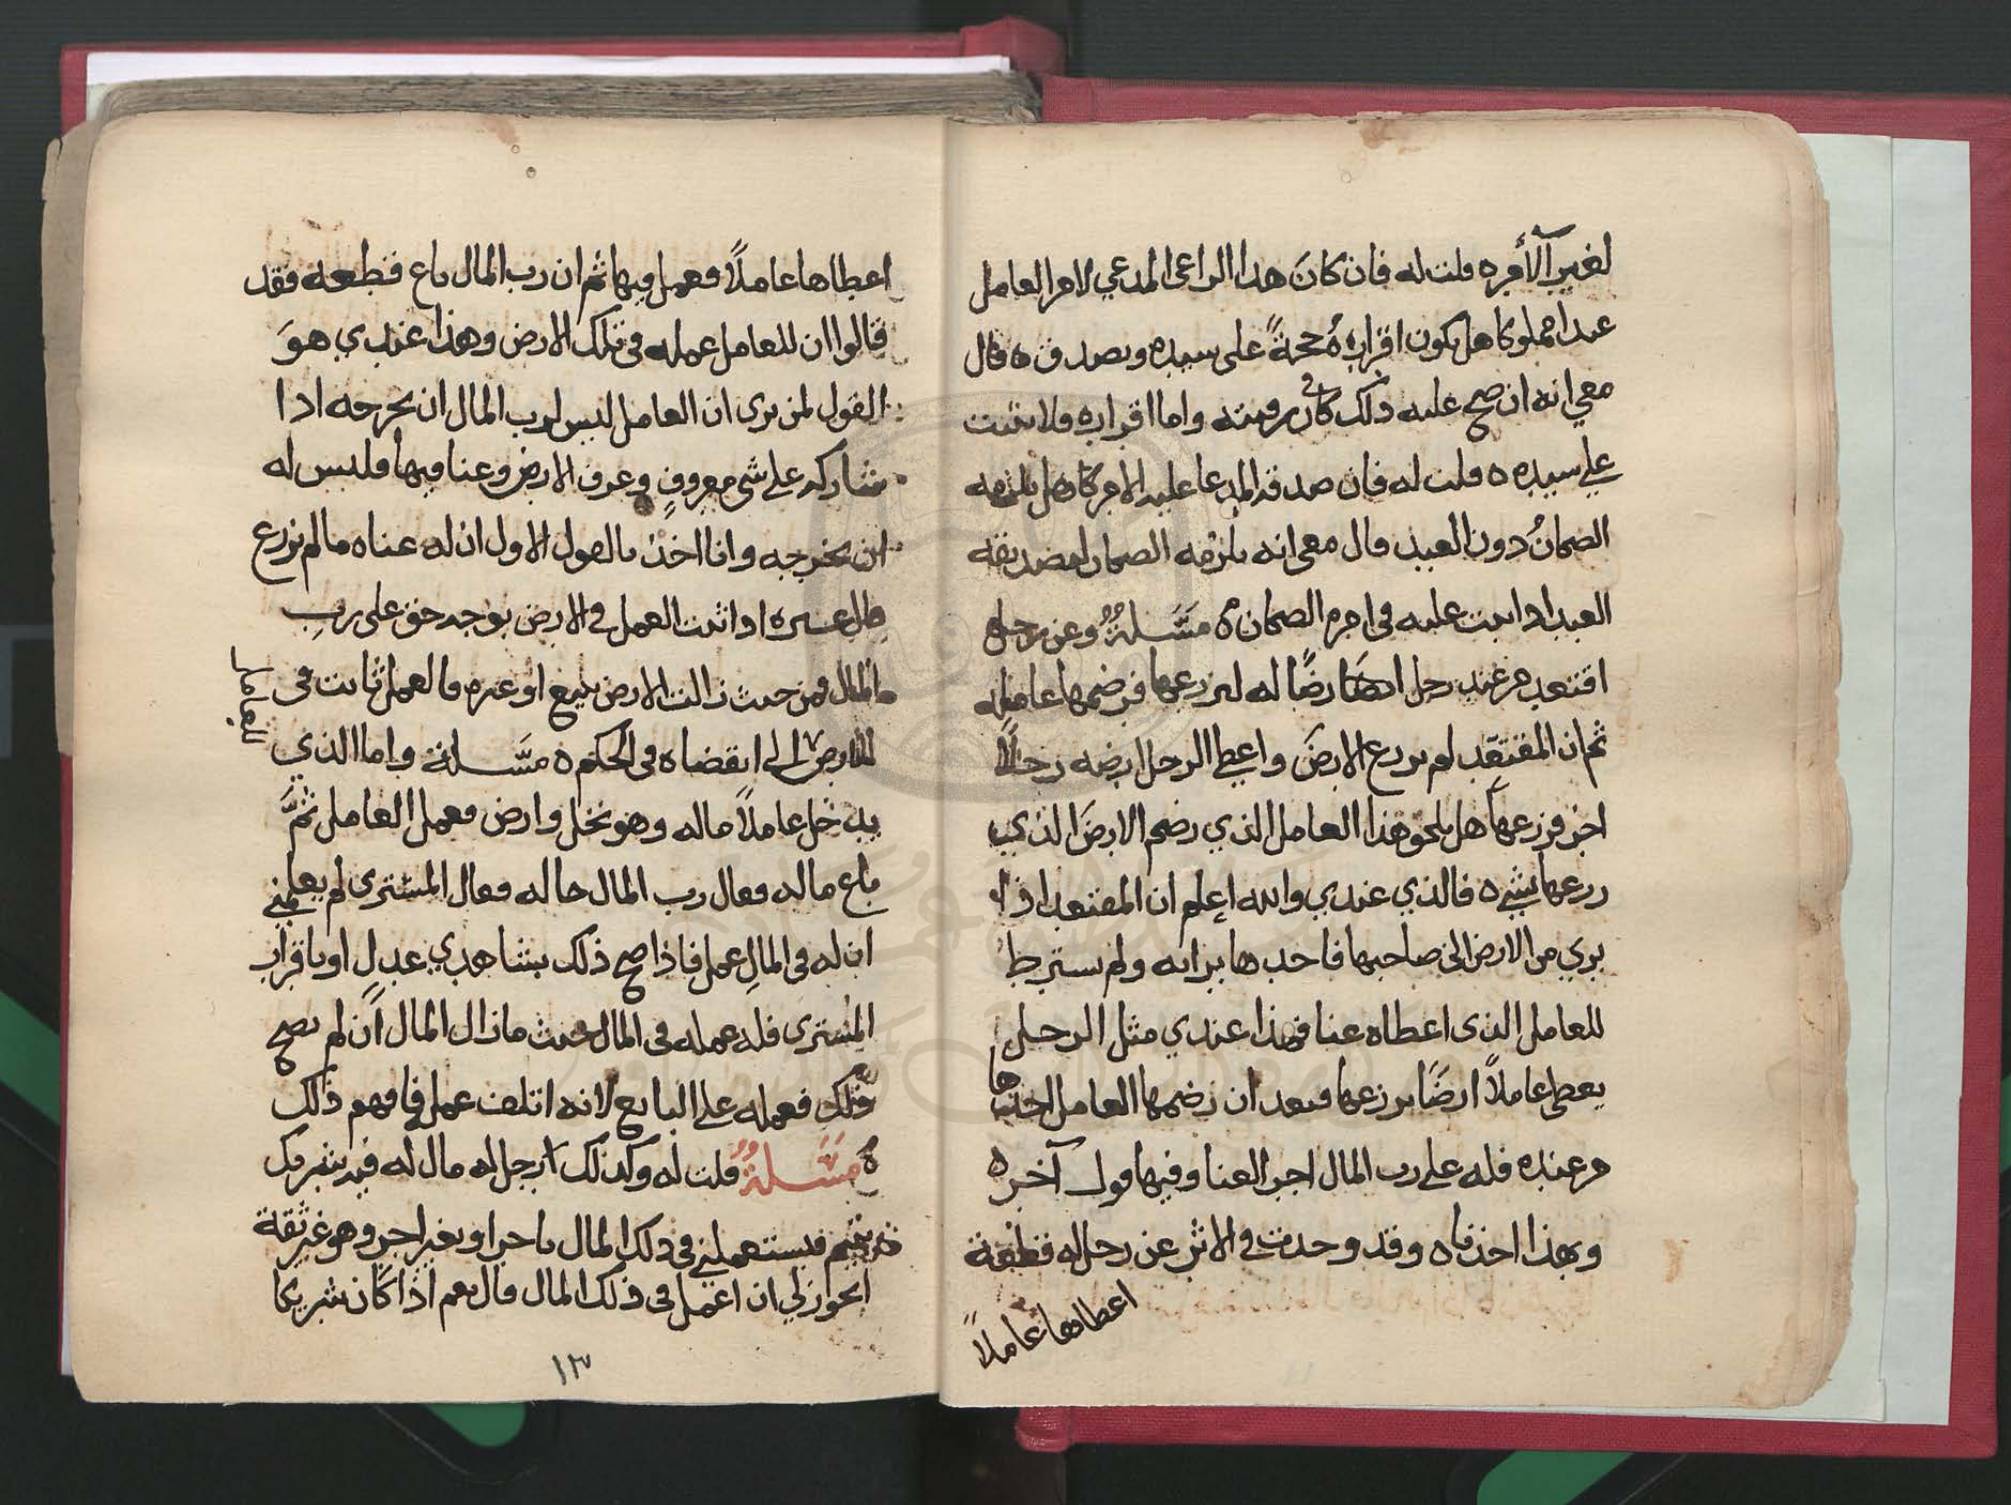 لغير الآمره قلت له فان كان هذا الراعي المدعي لامر العامل
عبدا مملوكا هل يكون اقراره حجةً على سيده ويصدق ه قال
معي انه ان صح عليه ذلك كان في رقبته واما اقراره فلا يثبت
على سيده ه قلت له فان صدقه المدعا عليه الامر كان هل يلزمه
الضمانُ دون العبد قال معي انه يلزمه الضمان لتصديقه
العبد اذا ثبت عليه في امره الضمان ه مَسَّلةُ وعن رجل
اقتعد من عند رجل ارضًا له ليزرعها فرضمها عامله
ثم ان المقتعد لم يزرع الارضَ واعطا الرجل ارضه رجلًا
اخر فزرعها هل يلحق هذا العامل الذي رضم الارضَ الذي
زرعها بشي ه فالذي عندي والله اعلم ان المقتعد اذا
بري من الارض الى صاحبها فاخذها برايه ولم يشترط
للعامل الذي اعطاه عنا فهذا عندي مثل الرجل
يعطي عاملاً ارضًا يزرعها فبعد ان رضمها العامل اخذها
من عنده فله على رب المال اجر العنا وفيها قول آخر ه
وبهذا اخذناه وقد وجدت في الاثر عن رجل له قطعة
اعطاها عاملاً
اعطاها عاملاً فعمل فيها ثم ان رب المال باع قطعه فقد
قالوا ان للعامل عمله في تلك الارض وهذا عندي هوَ
القول لمن يرى ان العامل ليس لرب المال ان يخرجه اذا
شاركه على شي معروفٍ وعرف الارض وعنا فيها فليس له
ان يخرجه وانا اخذ بالقول الاول ان له عناه ما لم يزرع
قال غيره اذا ثبت العمل في الارض بوجه حق على ربِ
المال فمن حيث زالت الارض ببيع او غيره فالعمل ثابت في
للعامل
الارض الى انقضاه في الحكم ه مَسَّلة واما الذي
يدخل عاملاً ماله وهو نخل وارض فعمل العامل ثمَّ
باع ماله فقال رب المال حاله فقال المشتري لم يعلمني
ان له في المالِ عمل فاذا صح ذلك بشاهدي عدلٍ او باقرار
المشتري فله عمله في المال حيث ما زال المال ان لم يصح
ذلك فعمله على البايع لانه اتلف عمله فافهم ذلك
ه مَسَّلةُ قلت له وكذلك رجل له مال له فيه شريك
يتيم فيستعملني في ذلك المال باجر او بغير اجر وهو غير ثقة
ايجوز لي ان اعمل في ذلك المال قال نعم اذا كان شريكا
١٣